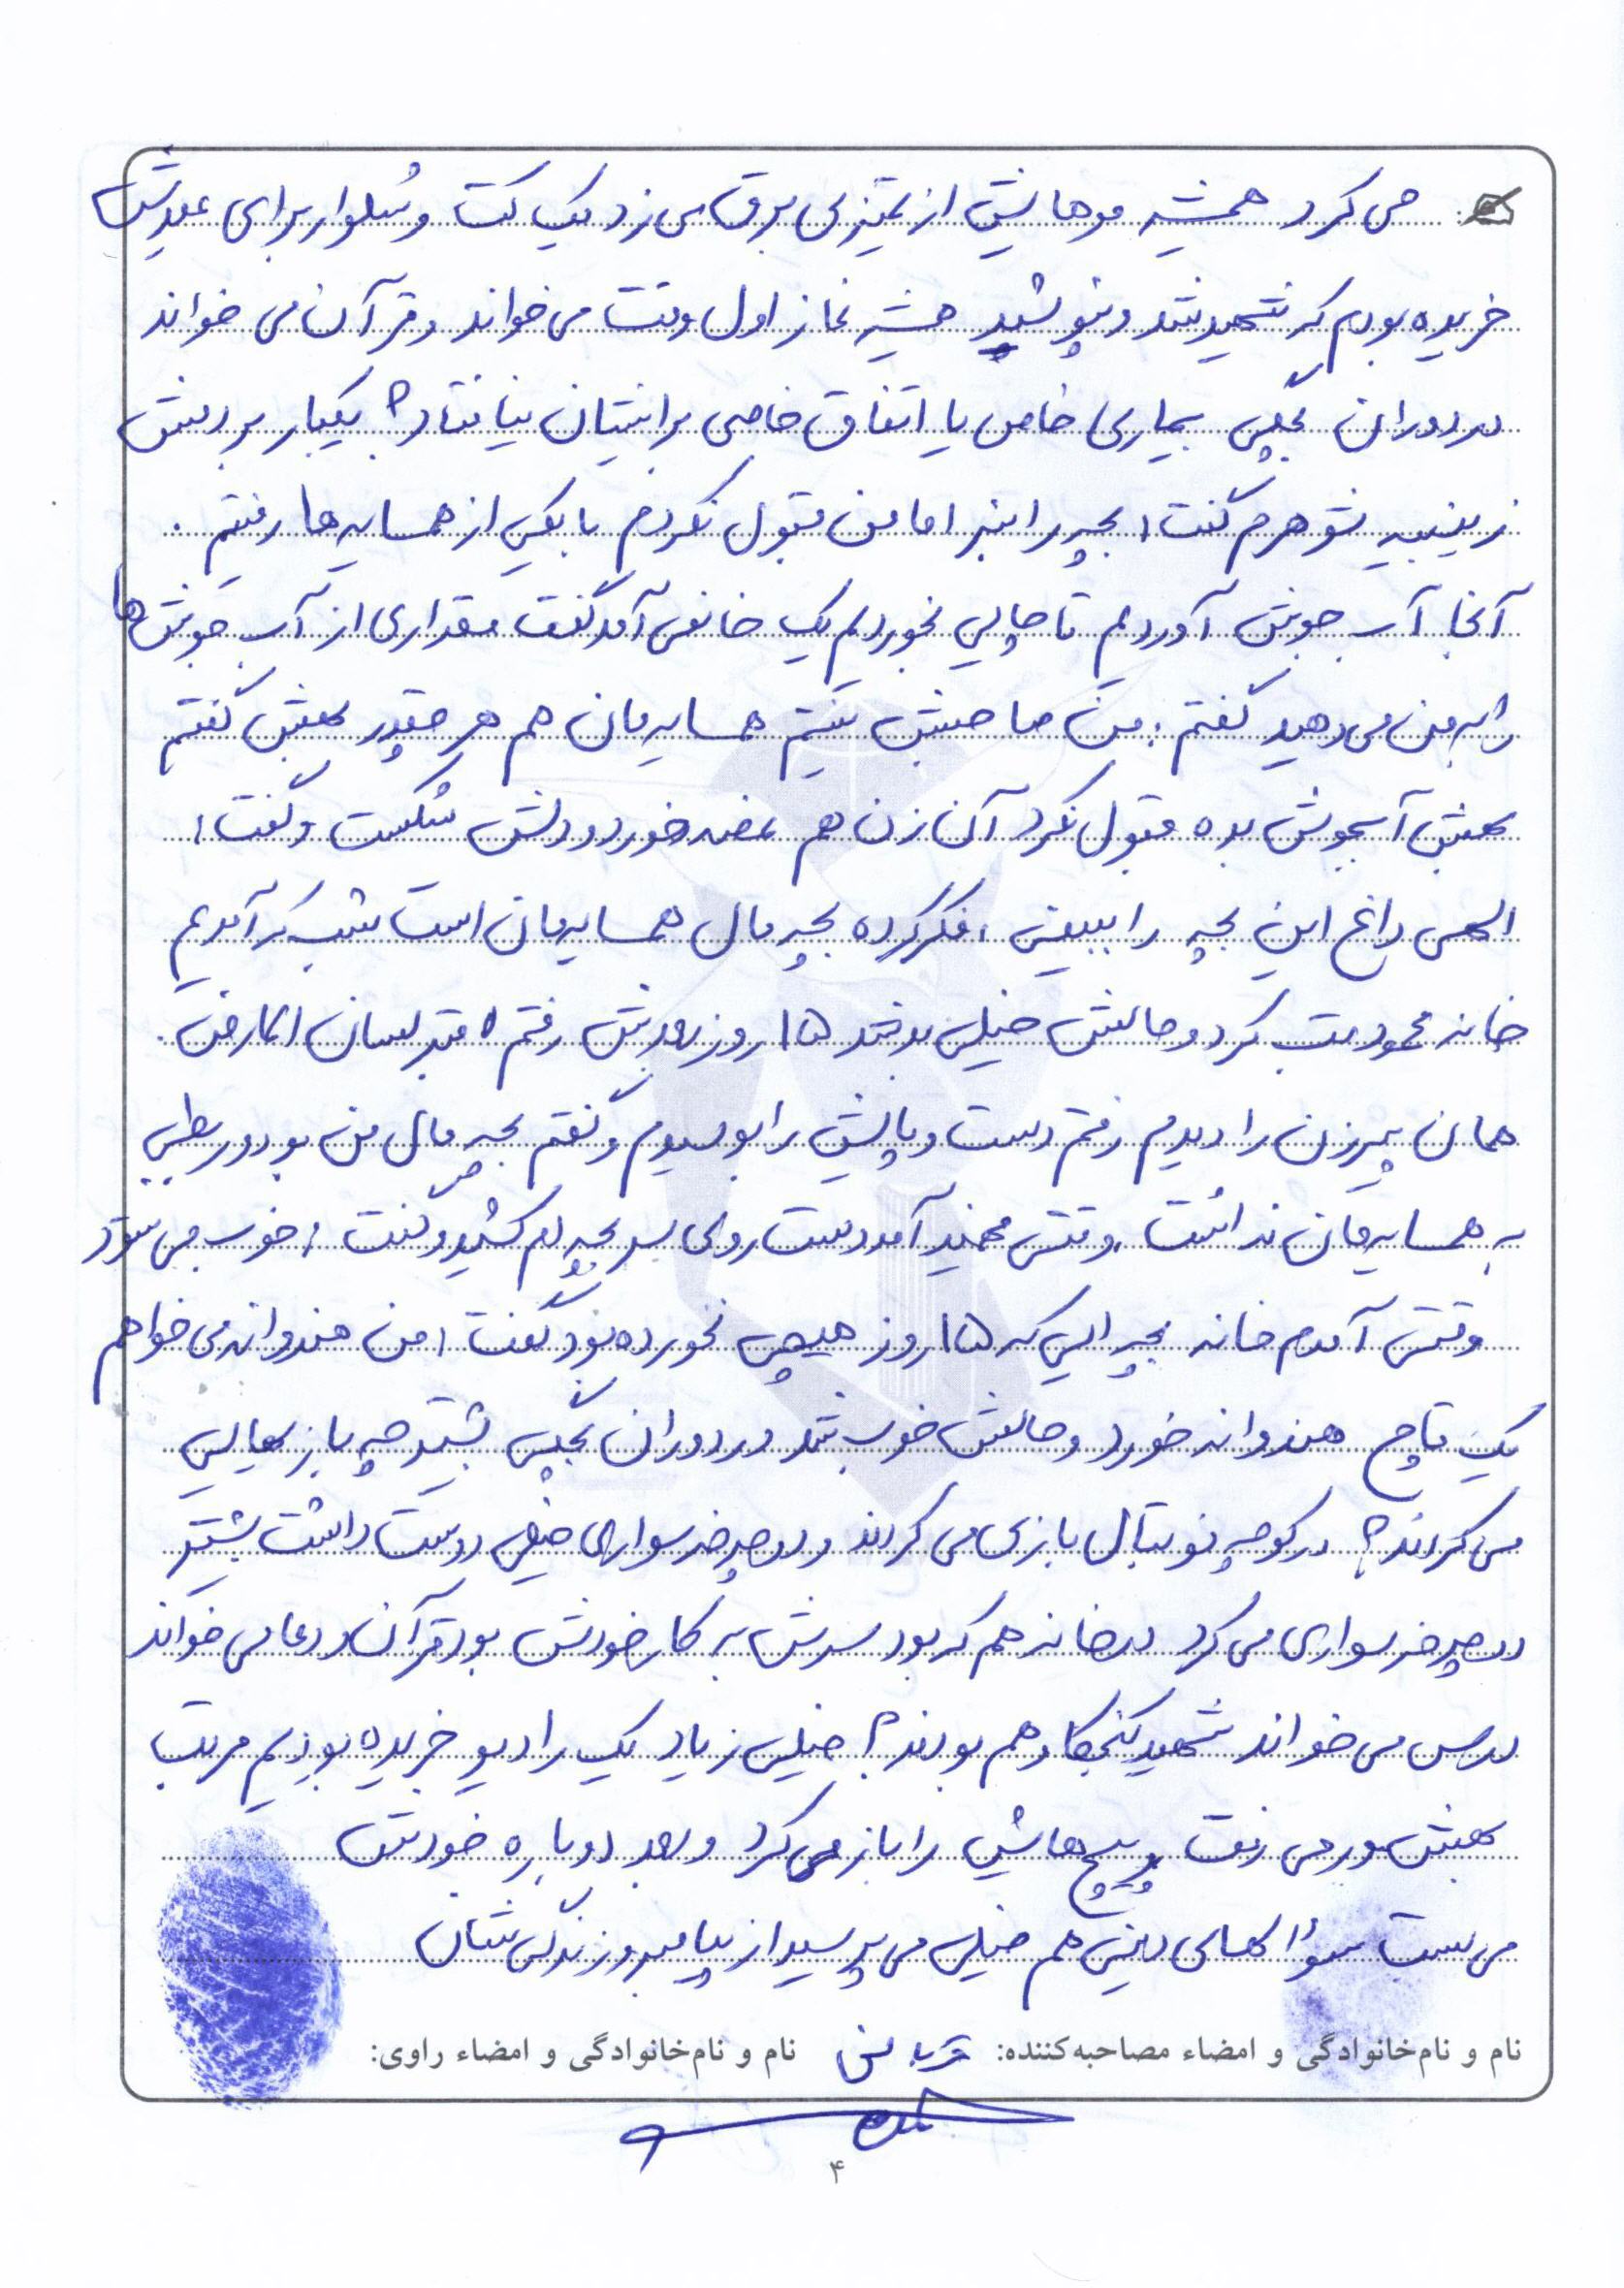 می کرد همیشه موهایش از تمیزی برق می زد یک کت و شلوار برای عیدش
خریده بودم که شهید شد و نپوشید همیشه نماز اول وقت می خواند و قرآن می خواند
در دوران بچگی بیماری خاص یا اتفاق خاصی برایشان نیافتاد؟ یکبار بردمش
زینبیه شوهرم گفت: بچه را نبر اما من قبول نکردم با یکی از همسایه ها رفتیم.
آنجا آب جوش آوردیم تا چایی بخوریم یک خانمی آمد گفت مقداری از آب جوش ها
را به من می دهید گفتم: من صاحبش نیستم همسایه مان هم هر چقدر بهش گفتم
بهش آبجوش بده قبول نکرد آن زن هم غصه خورد و دلش شکست و گفت:
الهی داغ این بچه را ببینی، فکر کرده بچه مال همسایه مان است شب که آمدیم
خانه محمود تب کرد و حالش خیلی بد شد ۱۵ روز بعدش رفتم قبرستان
همان پیرزن را دیدم رفتم دست و پایش را بوسیدم و گفتم بچه مال من بود و ربطی
به همسایه مان نداشت، وقتی فهمید آمد دست روی سر بچه ام کشید و گفت: خوب می شود
وقتی آمدم خانه بچه ایی که ۱۵ روز هیچی نخورده بود گفت: من هندوانه می خواهم
یک قاچ هندوانه خورد و حالش خوب شد در دوران بچگی بیشتر چه بازیهایی
می کردند؟ در کوچه فوتبال بازی می کردند و دوچرخه سواری خیلی دوست داشت بیشتر
دوچرخه سواری می کرد در خانه هم که بود سرش به کار خودش بود قرآن و دعا می خواند
درس می خواند شهید کنجکاو هم بودند؟ خیلی زیاد یک رادیو خریده بودیم مرتب
بهش ور می رفت و پیچ هاش را باز می کرد و بعد دوباره خودش
می بست سؤالهای دینی هم خیلی می پرسید از پیامبر و زندگی شان
نام و نام‌خانوادگی و امضاء مصاحبه‌کننده: نام و نام‌خانوادگی و امضاء راوی:
۴